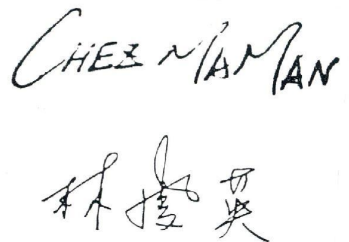 CHEZ MAMAN
林慶英